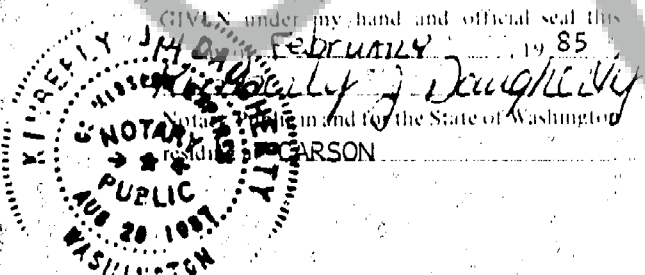 GIVEN under my hand and official seal this
14 DAY of February, 19 85
Kimberly J Daugherty
Notary Public in and for the State of Washington
residing CARSON
KIMBERLY J DAUGHERTY
NOTARY
PUBLIC
AUG 28 1987
WASHINGTON